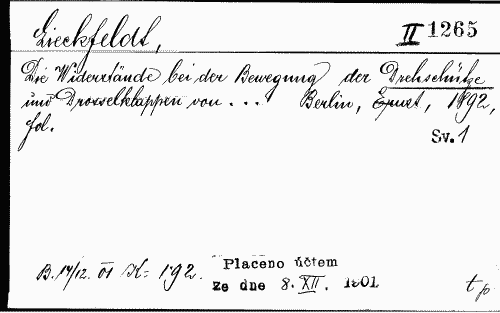 Lieckfeldt,
II 1265
Die Widerstände bei der Bewegung der Drehschütze
und Drosselklappen von ... Berlin, Ernst, 1892,
fol.
Sv. 1
Placeno účtem
B. 17/12. 01 K= 1.92. ze dne 8. XII. 1901